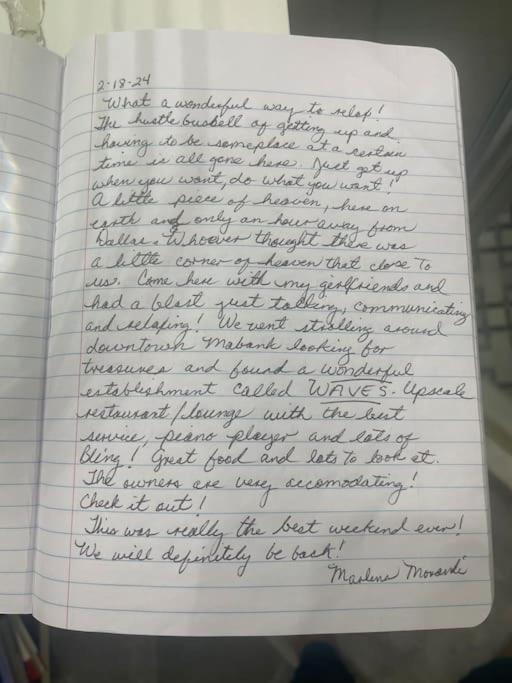 2-18-24
What a wonderful way to relax!
The hustle busbell of getting up and
having to be someplace at a certain
time is all gone here. Just get up
when you want, do what you want!
A little piece of heaven, here on
earth and only an hour away from
Dallas. Whoever thought there was
a little corner of heaven that close To
us. Come here with my girlfriends and
had a blast just talking, communicating
and relaxing! We went strolling around
downtown Mabank looking for
treasures and found a wonderful
establishment called WAVES. Upscale
restaurant/lounge with the best
service, piano player and lots of
Bling! Great food and lots To look at.
The owners are very accomodating!
Check it out!
This was really the best weekend ever!
We will definitely be back!
Marlena